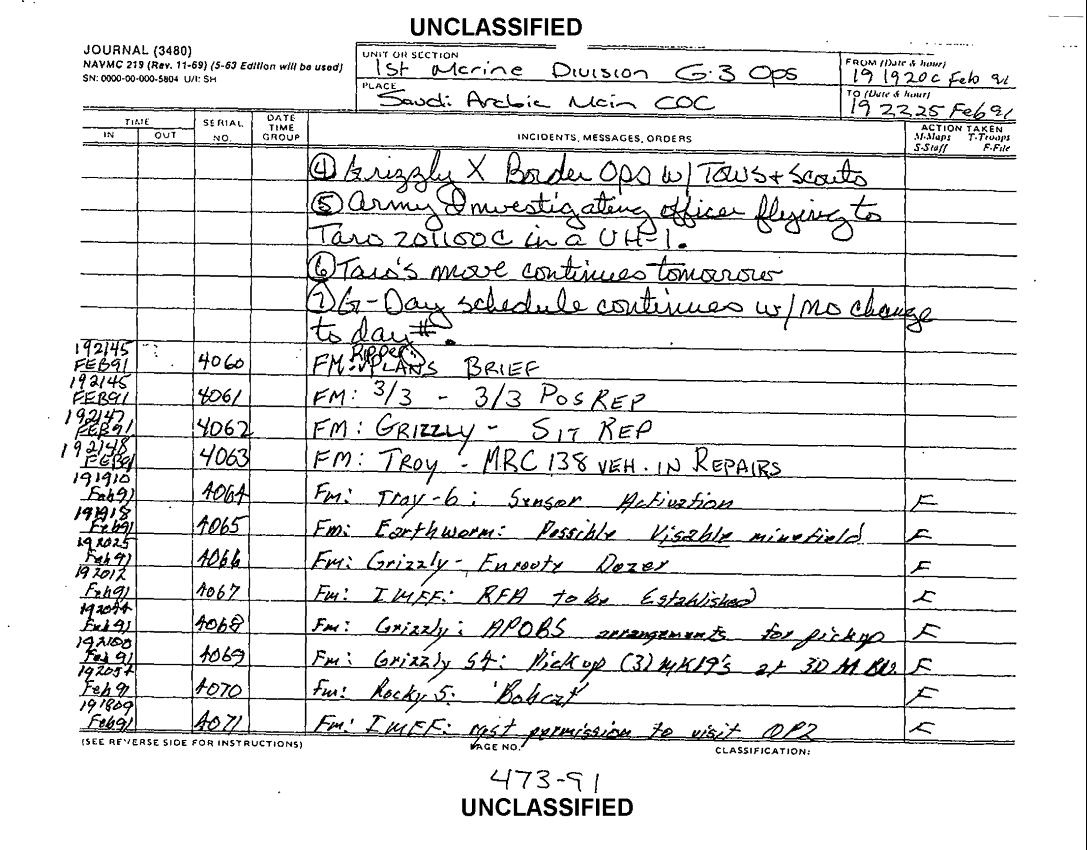 UNCLASSIFIED
JOURNAL (3480)
NAVMC 219 (Rev. 11-69) (5-63 Edition will be used)
SN: 0000-00-000-5804 U/I: SH
UNIT OR SECTION
1st Marine Division G-3 Ops
FROM (Date & hour)
191920C Feb 91
PLACE
Saudi Arabia Main COC
TO (Date & hour)
192225 Feb 91
TIME
IN OUT
SERIAL NO.
DATE TIME GROUP
INCIDENTS, MESSAGES, ORDERS
ACTION TAKEN
M-Maps T-Troops
S-Staff F-File
④ Grizzly X Border Ops w/ TOWS + Scouts
⑤ Army Investigating officer flying to
Taro 201100C in a UH-1.
⑥ Taro's move continues tomorrow
⑦ G-Day schedule continues w/ no change
to day #.
192145 FEB91 4060 FM: Ripper PLANS BRIEF
192145 FEB91 4061 FM: 3/3 - 3/3 POSREP
192147 FEB91 4062 FM: GRIZZLY - SIT REP
192148 FEB91 4063 FM: TROY - MRC 138 VEH. IN REPAIRS
191910 Feb91 4064 Fm: Troy-6: Sensor Activation F
191918 Feb91 4065 Fm: Earthworm: Possible Visable minefield F
192025 Feb91 4066 Fm: Grizzly - Enrouty Dozer F
192012 Feb91 4067 Fm: IMEF: RFA to be Established F
Feb91 4068 Fm: Grizzly: APOBS arrangements for pickup F
192100 Feb 91 4069 Fm: Grizzly S4: Pick up (3) MK19's at 3D M F
192054 Feb 91 4070 Fm: Rocky 5: 'Bobcat' F
191809 Feb91 4071 Fm: IMEF: rqst permission to visit OP2 F
(SEE REVERSE SIDE FOR INSTRUCTIONS)
PAGE NO.
CLASSIFICATION:
473-91
UNCLASSIFIED